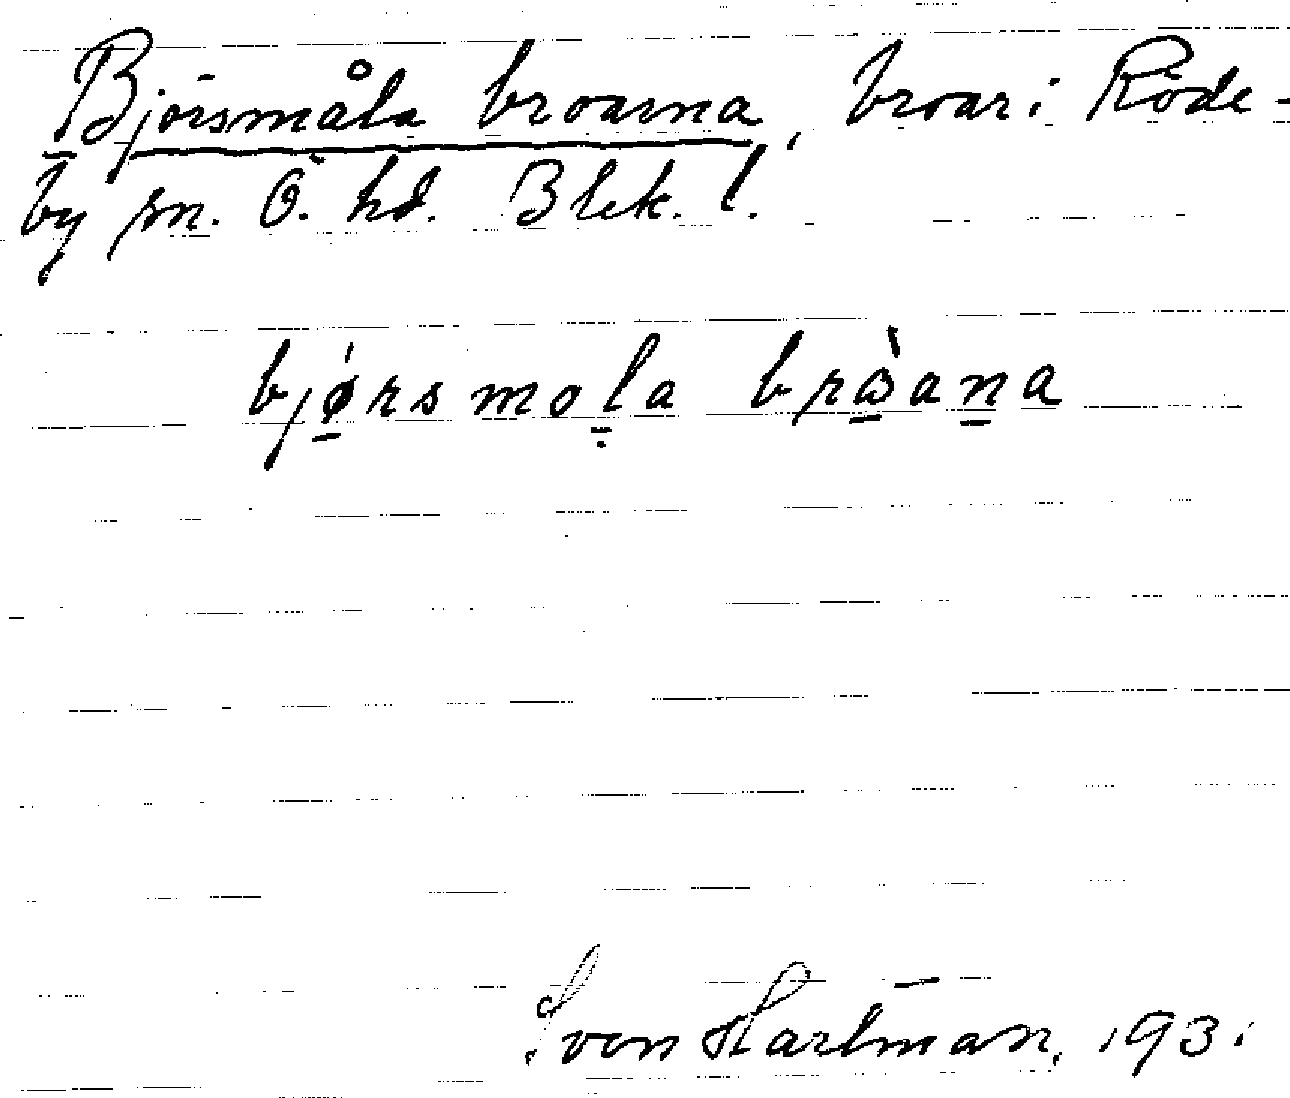 Björsmåla broarna, broar i Röde-
by sn. Ö. hd. Blek. l.
bjørsmola bròana
S. von Hartman, 1931